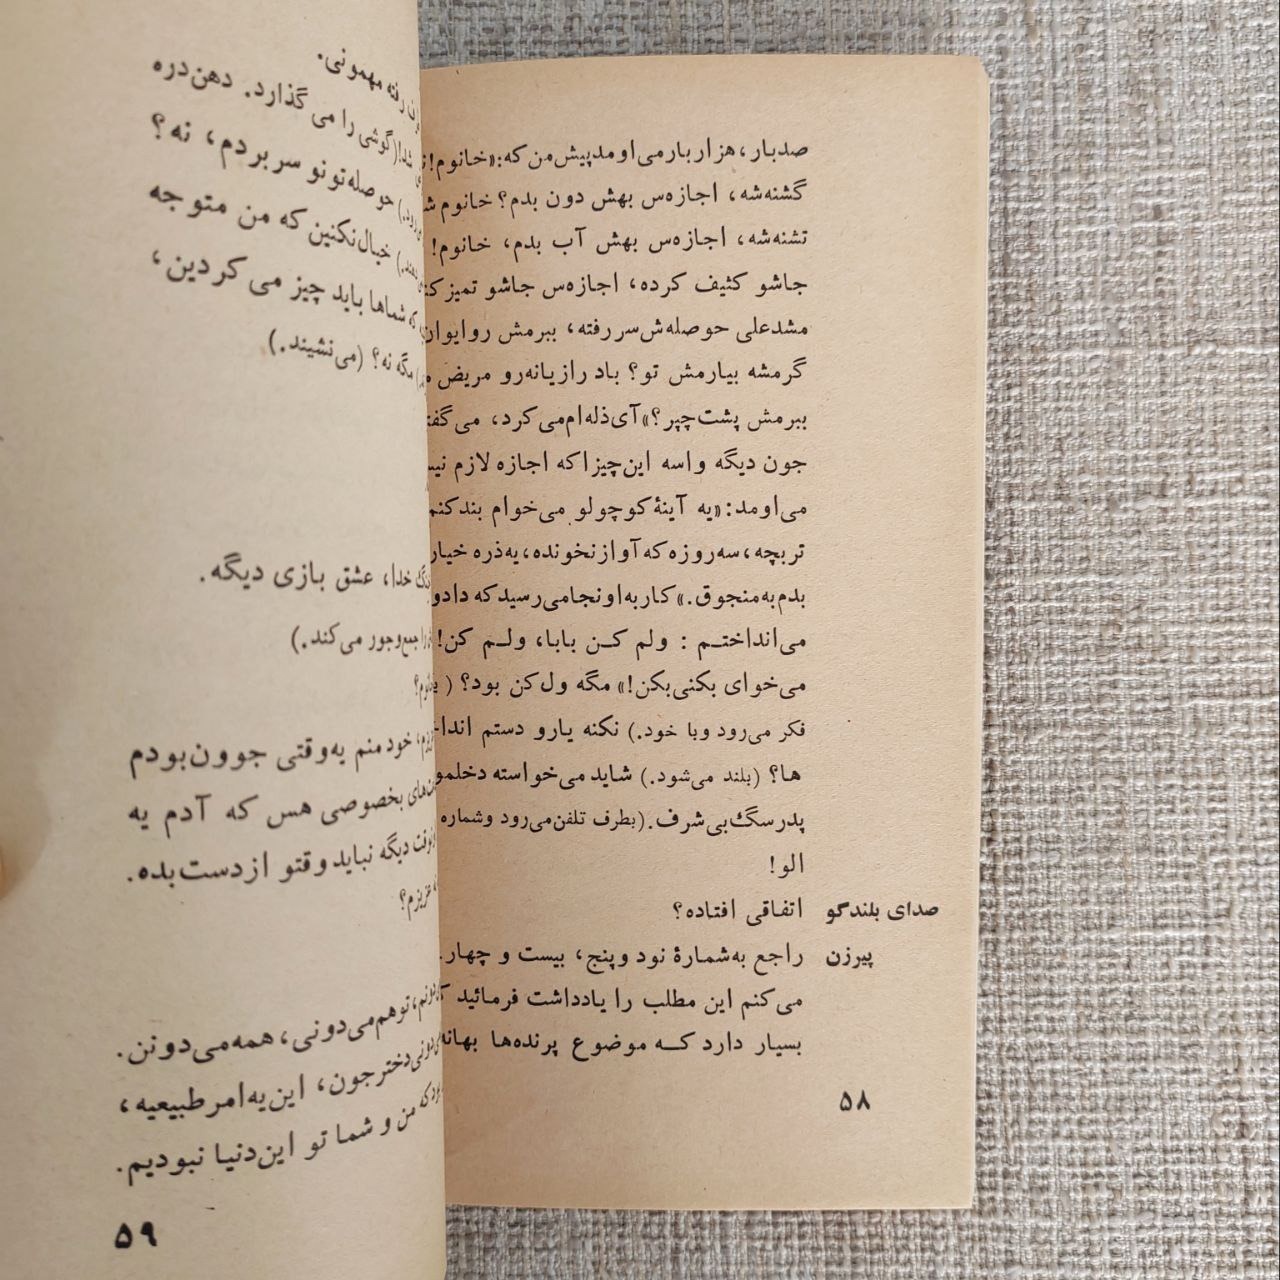 صدبار، هزاربارمی‌اومدپیش‌من‌که: «خانوم!
گشنه‌شه، اجازه‌س بهش دون بدم؟ خانوم
تشنه‌شه، اجازه‌س بهش آب بدم، خانوم!
جاشو کثیف کرده، اجازه‌س جاشو
مشدعلی حوصله‌ش‌سررفته، ببرمش روایوان
گرمشه بیارمش تو؟ باد رازیانه‌رو مریض
ببرمش پشت‌چپر؟» آی‌ذله‌ام‌می‌کرد،
جون دیگه واسه این‌چیزاکه اجازه لازم
می‌اومد: «یه آینهٔ کوچولو می‌خوام بندکنم
تربچه، سه‌روزه‌که آوازنخونده، یه‌ذره خیار
بدم‌به‌منجوق.» کاربه‌اونجامی‌رسیدکه دادو
می‌انداختم : ولم کن بابا، ولم کن!
می‌خوای بکنی‌بکن!» مگه ول‌کن بود؟ (
فکر می‌رود وبا خود.) نکنه یارو دستم
ها؟ (بلند می‌شود.) شاید می‌خواسته
پدرسگ‌بی‌شرف. (بطرف تلفن‌می‌رود وشماره
الو!
صدای بلندگو اتفاقی افتاده؟
پیرزن راجع به‌شمارهٔ نود وپنج، بیست و چهار.
می‌کنم این مطلب را یادداشت فرمائید
بسیار دارد که موضوع پرنده‌ها بهانه
۵۸
رفته مهمونی.
(گوشی را می‌گذارد. دهن‌دره
حوصله‌تونو سربردم، نه؟
خیال‌نکنین که من متوجه
که شماها باید چیز می‌کردین،
مگه نه؟ (می‌نشیند.)
خدا، عشق بازی دیگه.
جمع‌وجور می‌کند.)
خودمنم یه‌وقتی جوون‌بودم
بخصوصی هس که آدم یه
دیگه نباید وقتو ازدست‌بده.
عزیزم؟
توهم‌می‌دونی، همه‌می‌دونن.
دخترجون، این‌یه‌امرطبیعیه،
که من و شما تو این‌دنیا نبودیم.
۵۹